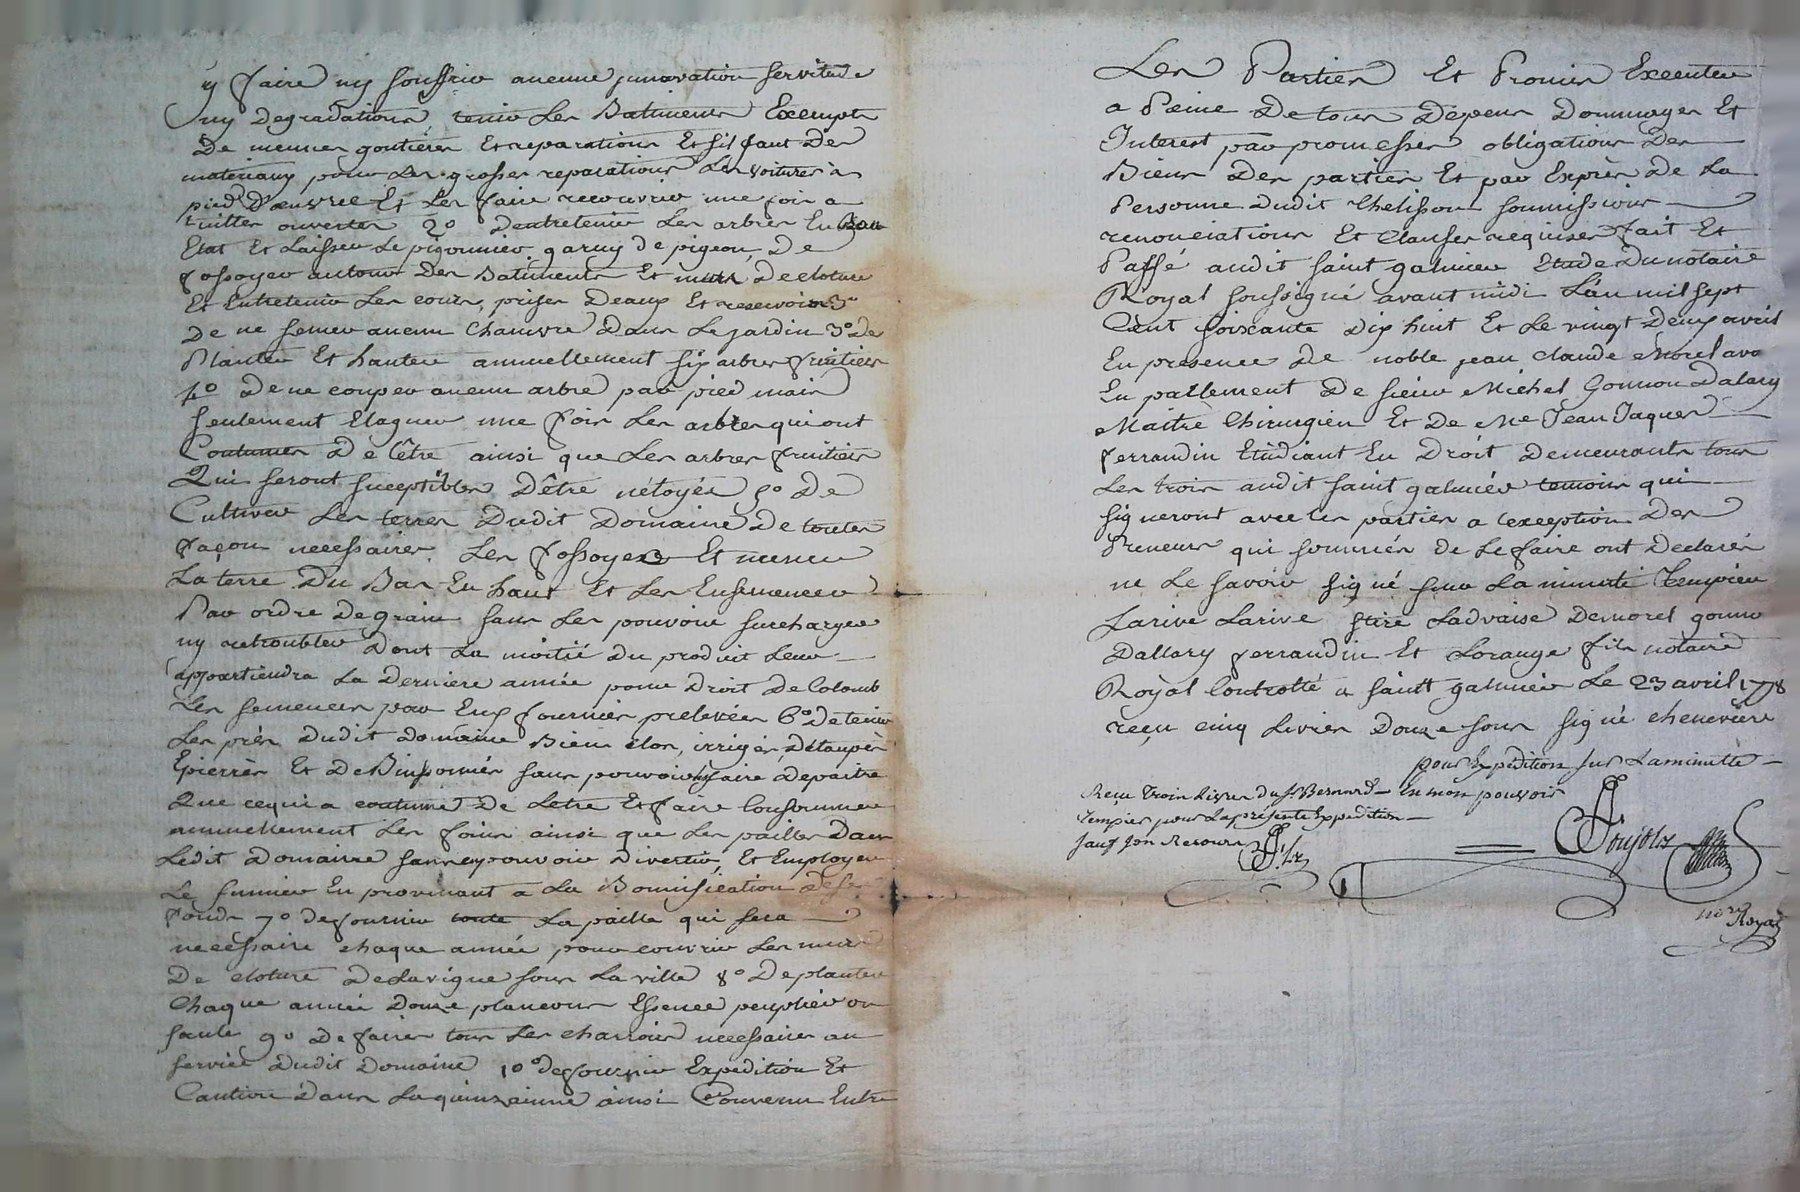 y faire ny souffrir aucune innovation servitude
ny Degradations tenir Les Batiments Exempts
De menues goutières Et reparations Et s'il faut Des
materiaux pour Les grosses reparations Les voiturer à
pied D'oeuvre Et Les faire recouvrir une fois a
tuilles ouvertes 2º D'entretenir Les arbres En Bon
Etat Et Laisser Le pigonnier garny de pigeons, De
fossoyer autour Des Batiments Et murs De cloture
Et Entretenir Les cours, prises D'eaux Et reservoirs 3º
De ne semer aucun chanvre Dans Le jardin 3º De
Planter Et hanter annuellement six arbres fruitiers
4º De ne couper aucun arbre par pied mais
seulement Elaguer une fois Les arbres qui ont
Coutumes De L'être ainsi que Les arbres fruitiers
Qui seront suceptibles D'être nétoyés 5º De
Cultiver Les terres Dudit Domaine De toutes
façons necessaires Les fossoyer Et mener
La terre Du Bas En haut Et Les Ensemencer
Par ordre De grain sans Les pouvoir surcharger
ny Dont La moitié Du produit Leur
appartiendra La Derniere année pour Droit De Colomb
Les semences par Eux fournies prelevées 6º De tenir
Les près Dudit Domaine Bien clos, irrigés, Détaupés
Epierrés Et De Buissonnés sans pouvoir faire Depaitre
Que ce qui a coutume De L'etre Et faire Consommer
annuellement Les foins ainsi que Les pailles Dans
Ledit Domaine sans en pouvoir Divertir, Et Employer
Le fumier En provenant à La Bonnification
fonds 7º de fournir toute La paille qui sera
necessaire chaque année pour couvrir Les murs
De cloture De La vigne sous La ville 8º De planter
Chaque année Douze plançons Essence peuplier ou
saule 9º De faire tous Les charrois necessaires au
service Dudit Domaine 10º de fournir Expedition Et
Caution Dans La quinzainne ainsi Convenu Entre
Les Parties Et Promis Executer
a Peine De tous Depens Dommages Et
Interest par promesses obligations Des
Biens Des parties Et par Exprès De La
Personne Dudit Chelisson soumissions
renonciations Et Clauses requises fait Et
Passé audit saint galmier Etude Du notaire
Royal soussigné avant midi L'an mil sept
Cent soixante Dix huit Et Le vingt Deux avril
En presence De noble jean Claude Morel avo
En parlement De sieur Michel Gonnon Dalary
Maitre Chirurgien Et De Me Jean Jaques
ferrandin Etudiant En Droit Demeurants tous
Les trois audit saint galmier temoins qui
signeront avec Les parties a L'exception Des
Preneurs qui sommés de Le faire ont Declarés
ne Le savoir signé sur La minutte Tempier
Larive Larive Ladvaise Demorel gonno
Dallary ferrandin Et Lorange fils notaire
Royal Controllé a saint galmier Le 23 avril 1778
reçu cinq Livres Douze sous signé cheneviere
pour Expedition sur La minutte
Reçu Trois Livres du sr Bernard En mon pouvoir
Tempier pour La présente Expedition
sauf son Recours
Poujols
nore
Royal